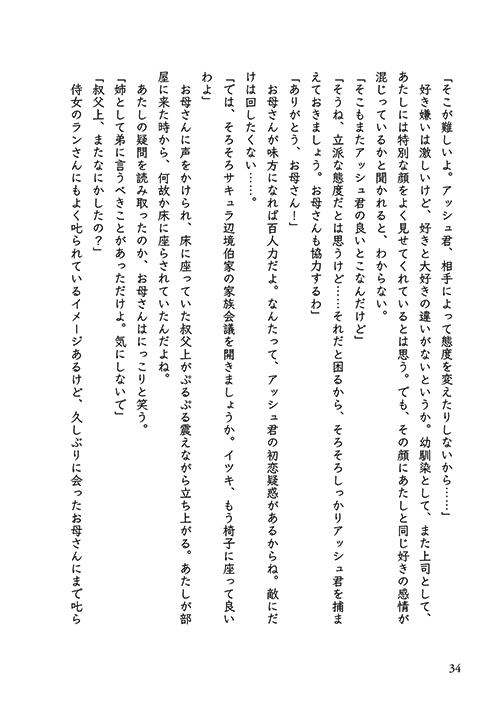 「そこが難しいよ。アッシュ君、相手によって態度を変えたりしないから……」
好き嫌いは激しいけど、好きと大好きの違いがないというか。幼馴染として、また上司として、
あたしには特別な顔をよく見せてくれているとは思う。でも、その顔にあたしと同じ好きの感情が
混じっているかと聞かれると、わからない。
「そこもまたアッシュ君の良いとこなんだけど」
「そうね、立派な態度だとは思うけど……それだと困るから、そろそろしっかりアッシュ君を捕ま
えておきましょう。お母さんも協力するわ」
「ありがとう、お母さん！」
お母さんが味方になれば百人力だよ。なんたって、アッシュ君の初恋疑惑があるからね。敵にだ
けは回したくない……。
「では、そろそろサキュラ辺境伯家の家族会議を開きましょうか。イツキ、もう椅子に座って良い
わよ」
お母さんに声をかけられ、床に座っていた叔父上がぷるぷる震えながら立ち上がる。あたしが部
屋に来た時から、何故か床に座らされていたんだよね。
あたしの疑問を読み取ったのか、お母さんはにっこりと笑う。
「姉として弟に言うべきことがあっただけよ。気にしないで」
「叔父上、またなにかしたの？」
侍女のランさんにもよく叱られているイメージあるけど、久しぶりに会ったお母さんにまで叱ら
34